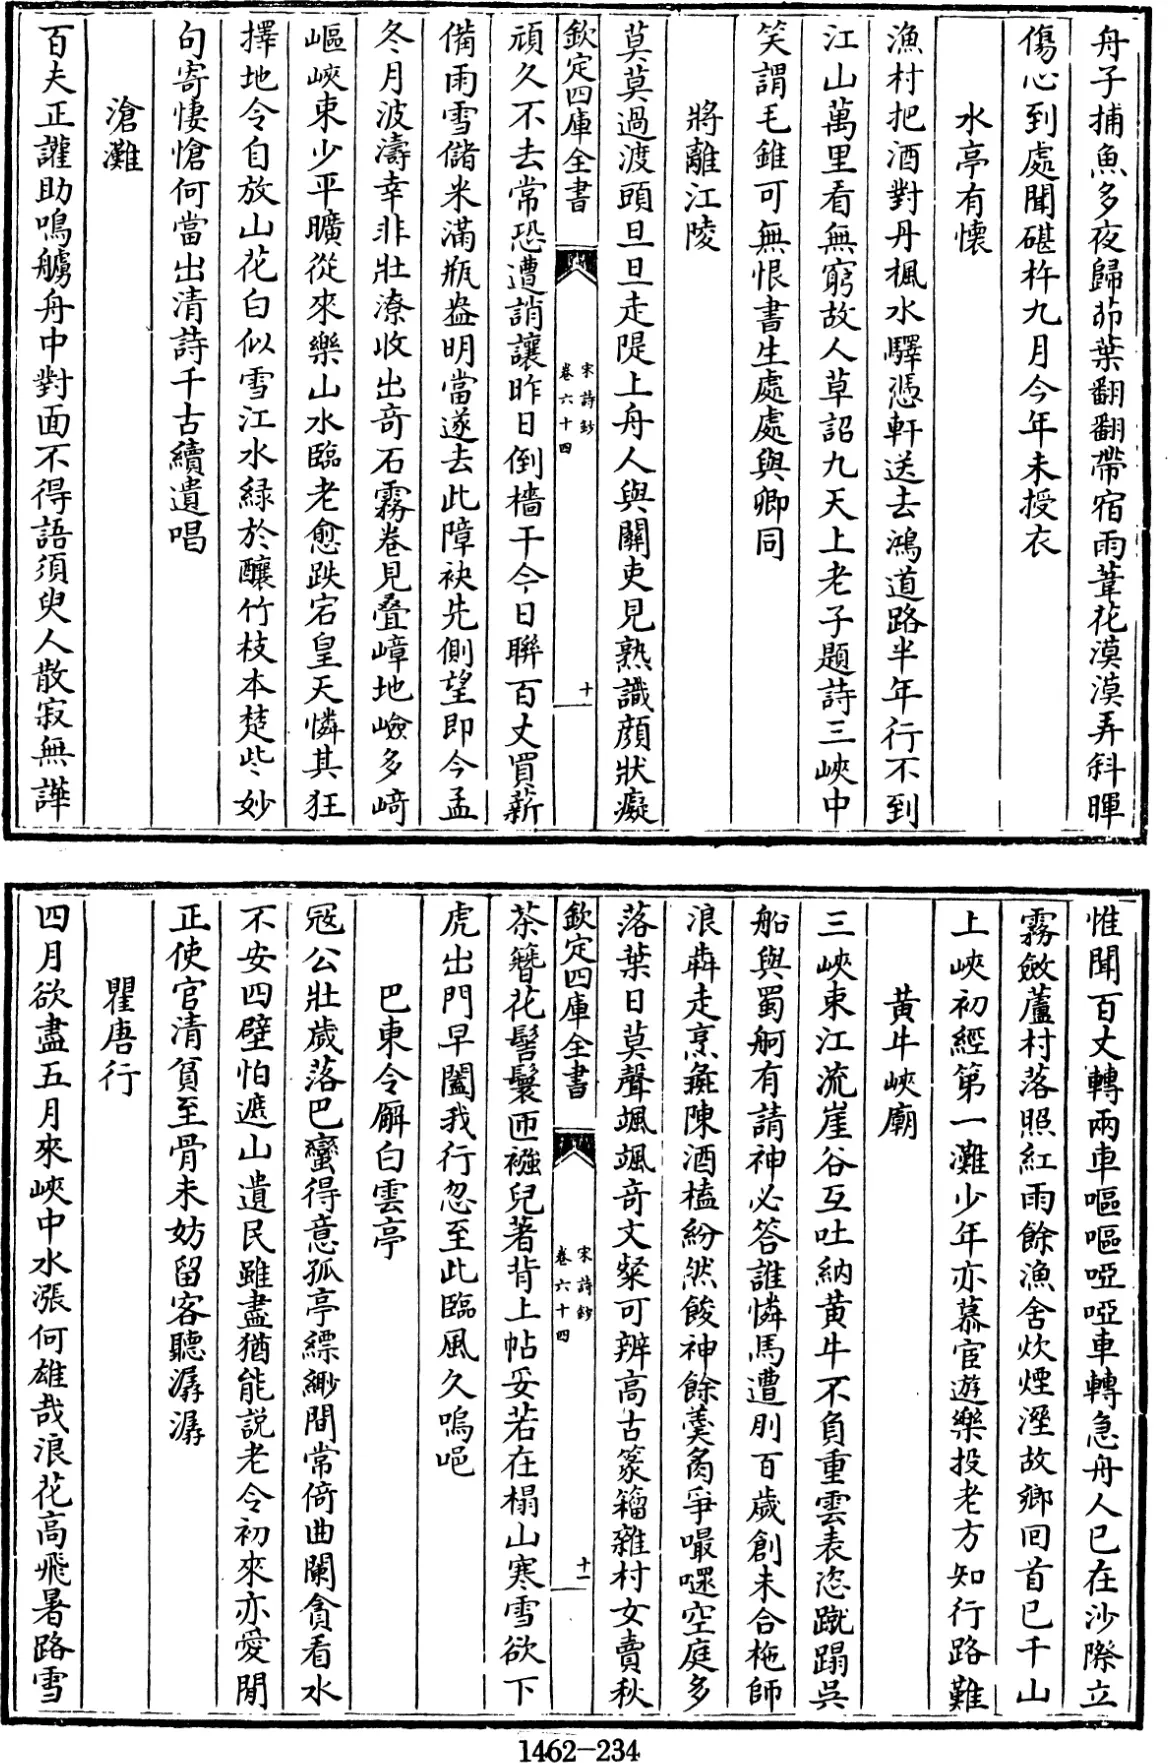 舟子捕魚多夜歸茆葉翻翻帶宿雨葦花漠漠弄斜暉
傷心到處聞碪杵九月今年未授衣
水亭有懐
漁村把酒對丹楓水驛憑軒送去鴻道路半年行不到
江山萬里看無窮故人草詔九天上老子題詩三峽中
笑謂毛錐可無恨書生處處與卿同
將離江陵
莫莫過渡頭旦旦走隄上舟人與關吏見熟識顔狀癡
欽定四庫全書
宋詩鈔
卷六十四
十
頑久不去常恐遭誚讓昨日倒檣干今日聯百丈買薪
備雨雪儲米滿瓶盎明當遂去此障袂先側望即今孟
冬月波濤幸非壯潦收出奇石霧卷見疊嶂地嶮多崎
嶇峽束少平曠從來樂山水臨老愈跌宕皇天憐其狂
擇地令自放山花白似雪江水緑於釀竹枝本楚些妙
句寄悽愴何當出清詩千古續遺唱
滄灘
百夫正讙助鳴艣舟中對面不得語須臾人散寂無譁
惟聞百丈轉兩車嘔嘔啞啞車轉急舟人已在沙際立
霧斂蘆村落照紅雨餘漁舍炊煙溼故鄉回首已千山
上峽初經第一灘少年亦慕宦遊樂投老方知行路難
黄牛峽廟
三峽束江流崖谷互吐納黄牛不負重雲表恣蹴蹋吳
船與蜀舸有請神必答誰憐馬遭刖百歲創未合柂師
浪犇走烹彘陳酒榼紛然餕神餘羹胾爭嘬嚃空庭多
落葉日莫聲颯颯奇文粲可辨高古篆籀雜村女賣秋
欽定四庫全書
宋詩鈔
卷六十四
十一
茶簪花髻鬟匝襁兒著背上帖妥若在榻山寒雪欲下
虎出門早闔我行忽至此臨風久嗚唈
巴東令廨白雲亭
寇公壯歲落巴蠻得意孤亭縹緲間常倚曲闌貪看水
不安四壁怕遮山遺民雖盡猶能説老令初來亦愛閒
正使官清貧至骨未妨留客聽潺潺
瞿唐行
四月欲盡五月來峽中水漲何雄哉浪花高飛暑路雪
1462—234